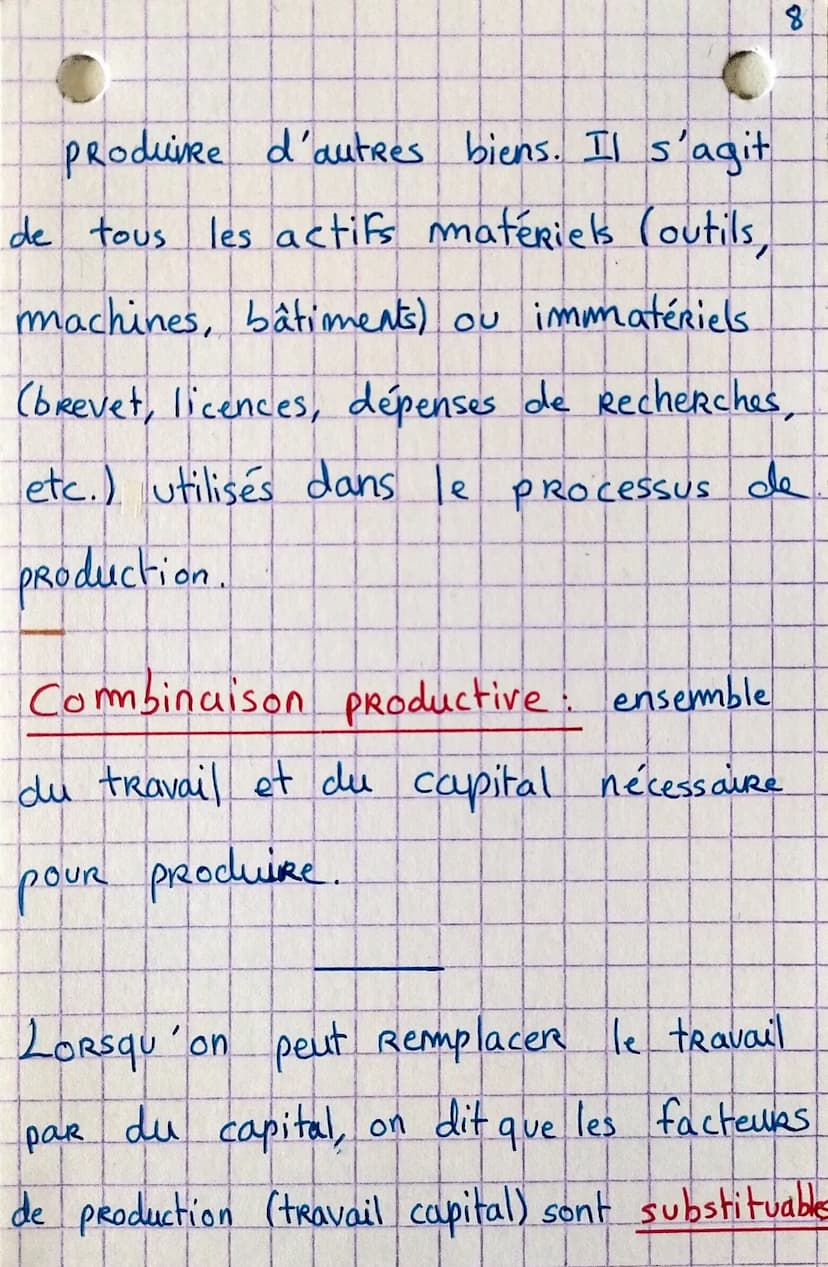 8
produire d'autres biens. Il s'agit
de tous les actifs matériels (outils,
machines, bâtiments) ou immatériels
(brevet, licences, dépenses de recherches,
etc.) utilisés dans le processus de
production.
Combinaison productive : ensemble
du travail et du capital nécessaire
pour produire.
Lorsqu'on peut remplacer le travail
par du capital, on dit que les facteurs
de production (travail capital) sont substituables